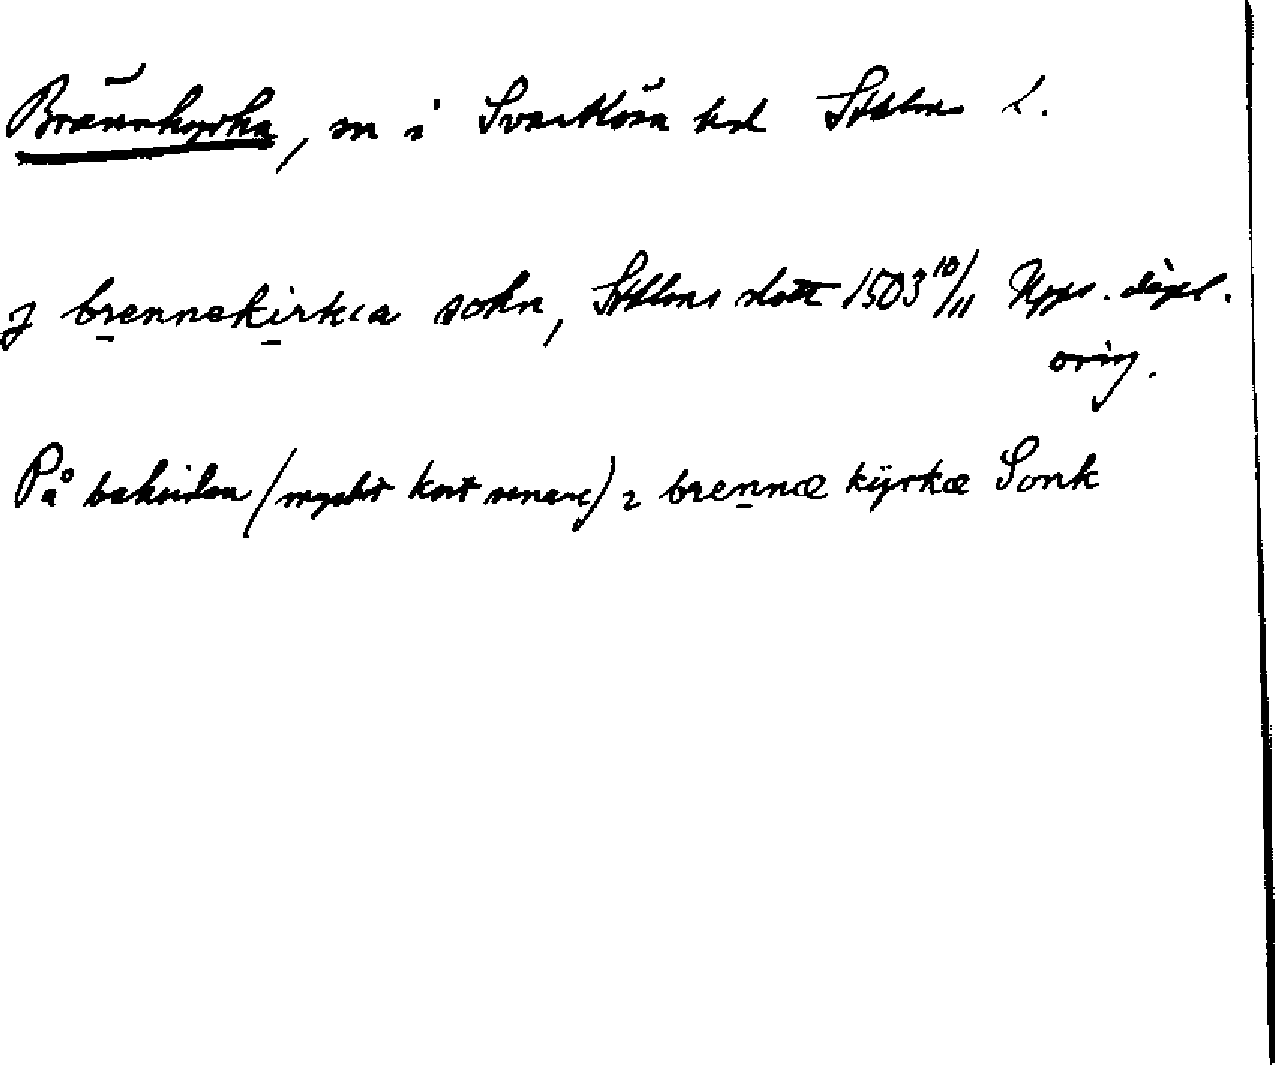 Brännkyrka, sn i Svartlösa hd Sthlms l.
J brennekirkia sokn, Sthlms slott 1503 10/11 Upps. dipl.
orig.
På baksidan (mycket kort senare) 2 brennæ kÿrkæ Sonk